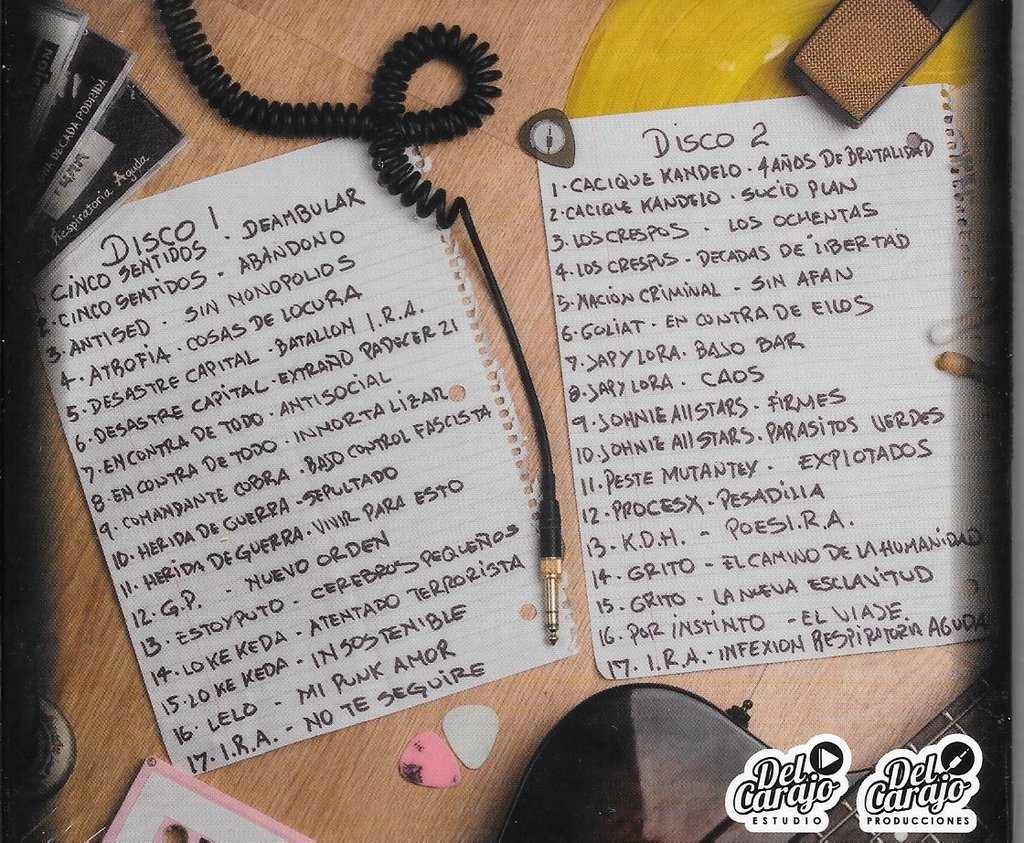 UNA DECADA PODRIDA
Respiratoria Aguda
DISCO 1
1. CINCO SENTIDOS . DEAMBULAR
2. CINCO SENTIDOS - ABANDONO
3. ANTISED - SIN NONOPOLIOS
4. ATROFIA . COSAS DE LOCURA
5. DESASTRE CAPITAL - BATALLON I.R.A.
6. DESASTRE CAPITAL - EXTRAÑO PADECER 21
7. EN CONTRA DE TODO - ANTISOCIAL
8. EN CONTRA DE TODO - INNORTALIZAR
9. COMANDANTE COBRA . BAJO CONTROL FASCISTA
10. HERIDA DE GUERRA - SEPULTADO
11. HERIDA DE GUERRA . VIVIR PARA ESTO
12. G.P. - NUEVO ORDEN
13. ESTOYPUTO - CEREBROS PEQUEÑOS
14. LO KE KEDA - ATENTADO TERRORISTA
15. LO KE KEDA - INSOSTENIBLE
16. LELO - MI PUNK AMOR
17. I.R.A. - NO TE SEGUIRE
DISCO 2
1. CACIQUE KANDELO - 4 AÑOS DE BRUTALIDAD
2. CACIQUE KANDELO - SUCIO PLAN
3. LOS CRESPOS - LOS OCHENTAS
4. LOS CRESPOS - DECADAS DE LIBERTAD
5. NACIÓN CRIMINAL - SIN AFAN
6. GOLIAT - EN CONTRA DE ELLOS
7. JAPYLORA . BAJO BAR
8. JAPYLORA . CAOS
9. JOHNIE ALLSTARS . FIRMES
10. JOHNIE ALLSTARS . PARASITOS VERDES
11. PESTE MUTANTEX - EXPLOTADOS
12. PROCESX - PESADILLA
13. K.D.H. - POESI.R.A.
14. GRITO - EL CAMINO DE LA HUMANIDAD
15. GRITO - LA NUEVA ESCLAVITUD
16. POR INSTINTO - EL VIAJE
17. I.R.A. - INFEXION RESPIRATORIA AGUDA
Del Carajo
ESTUDIO
Del Carajo
PRODUCCIONES